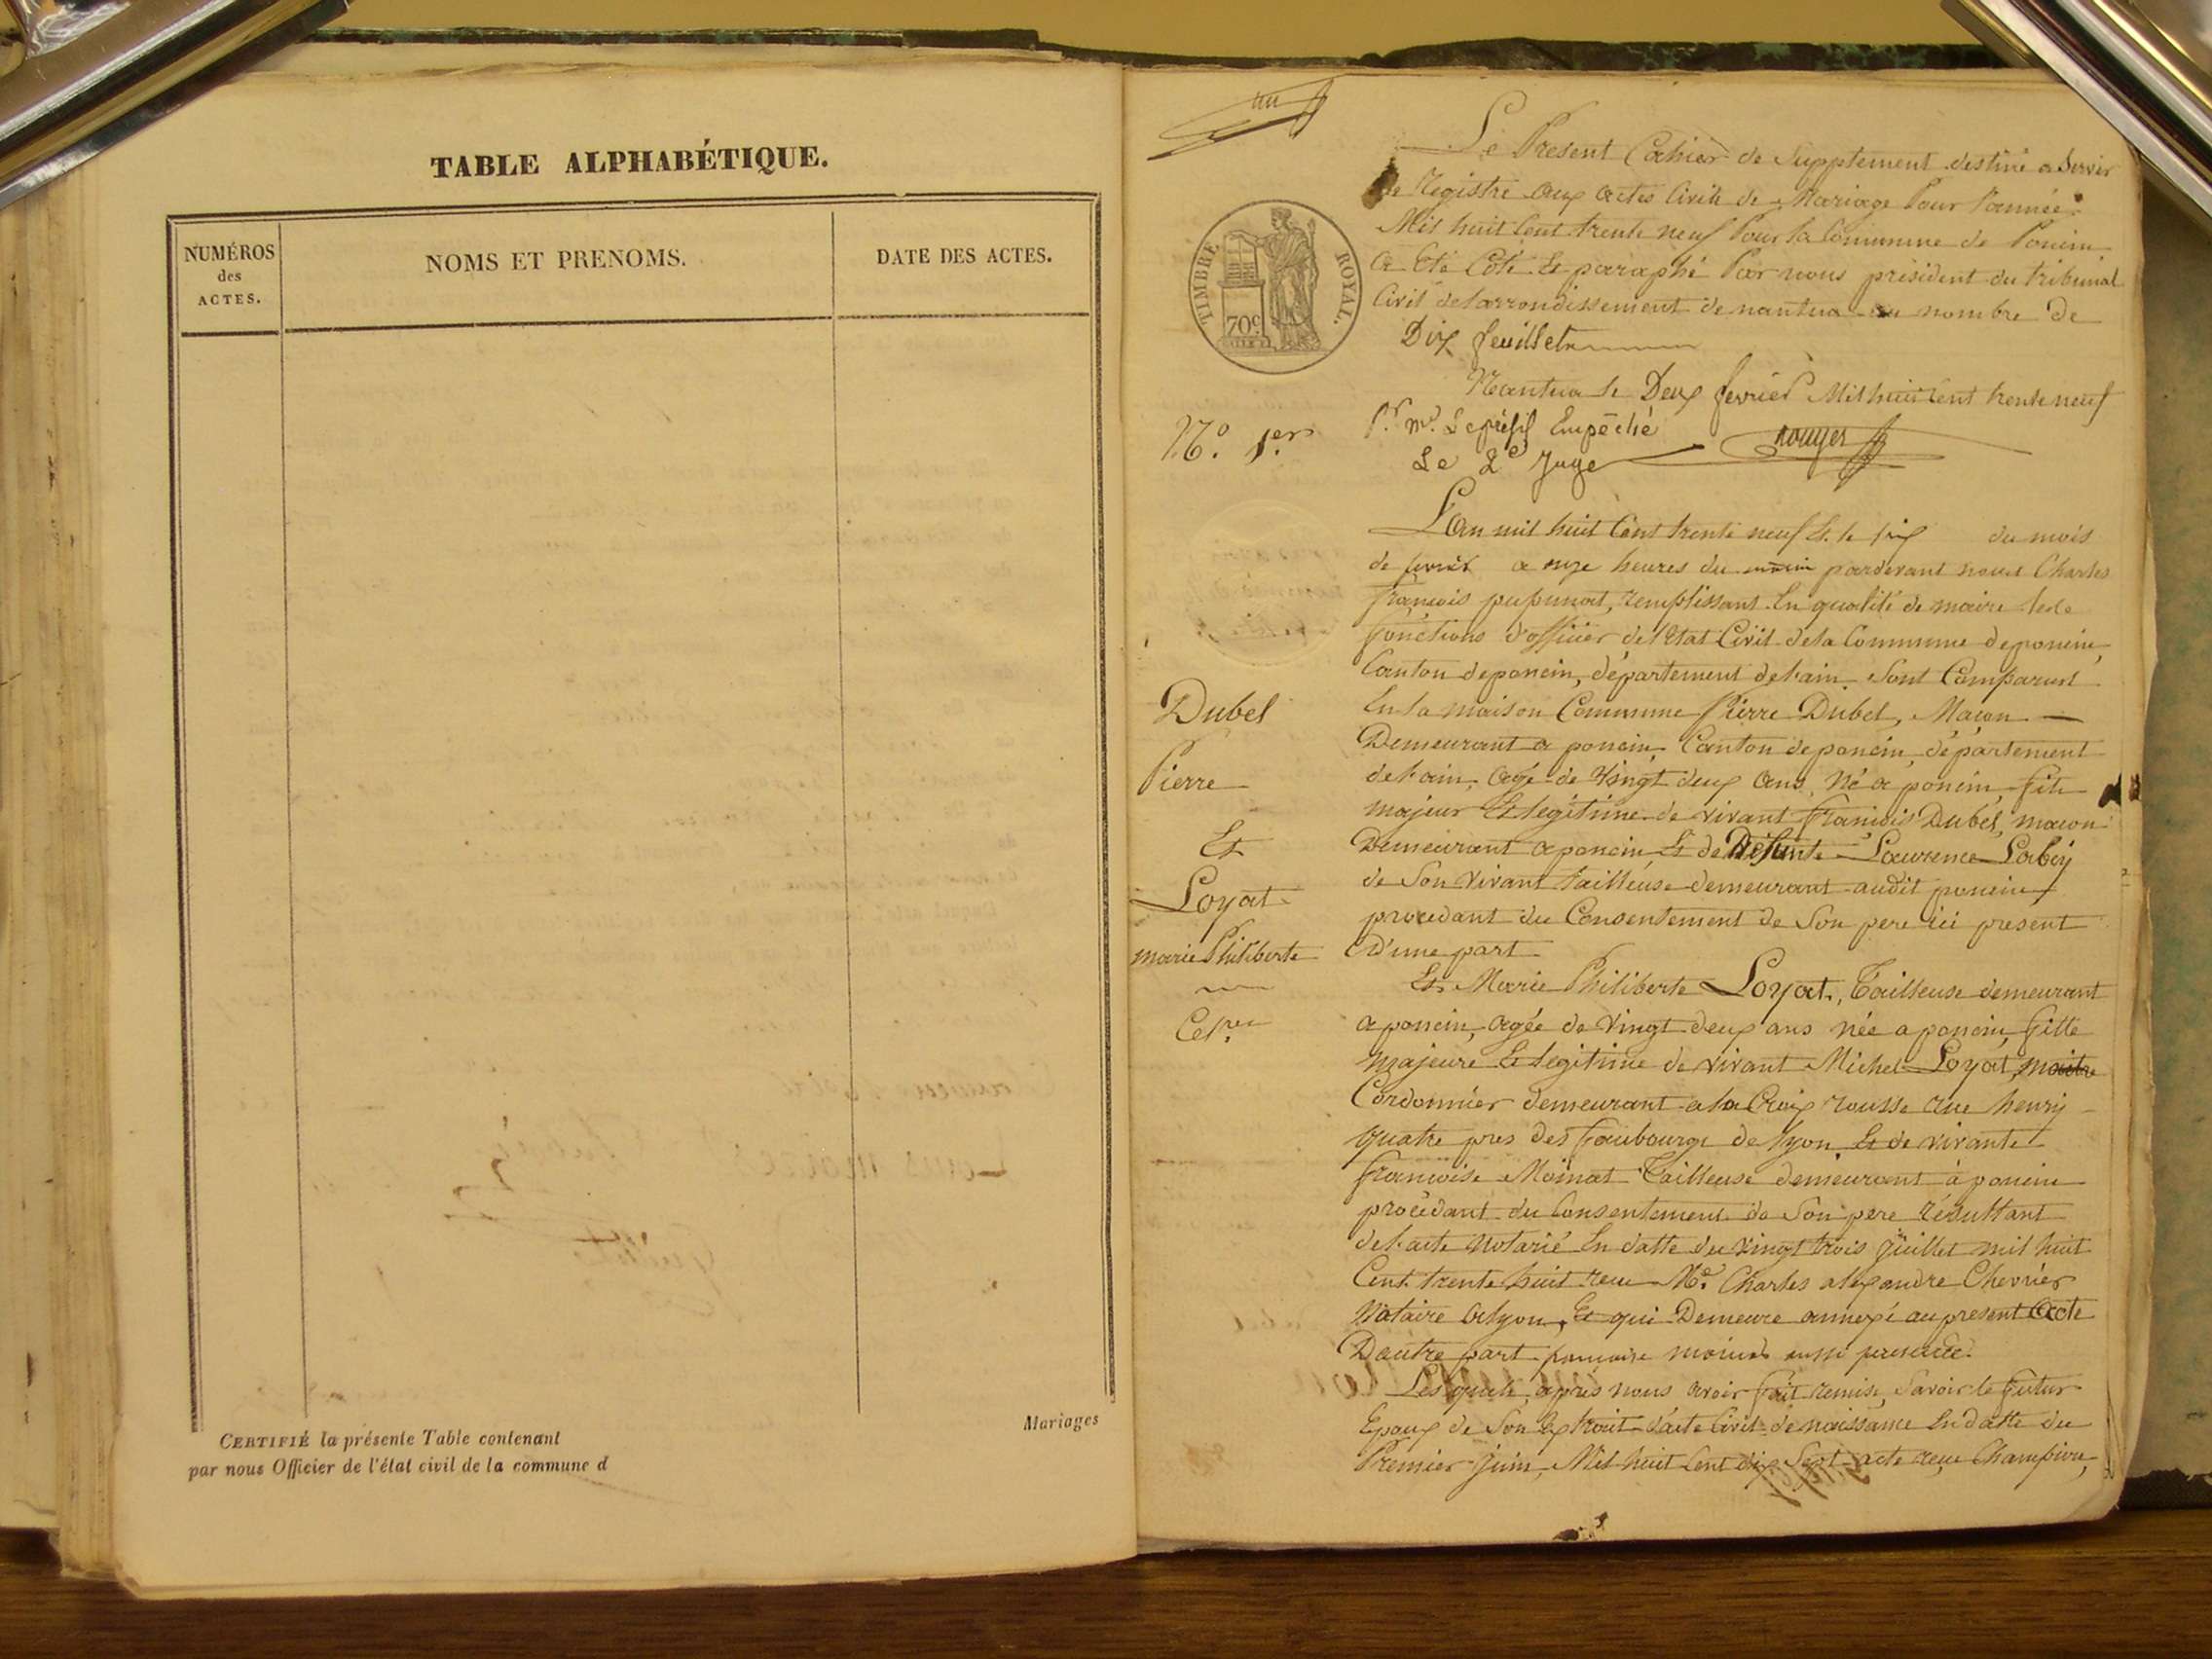 TABLE ALPHABÉTIQUE.
NUMÉROS
des
ACTES.
NOMS ET PRENOMS.
DATE DES ACTES.
CERTIFIÉ la présente Table contenant
par nous Officier de l'état civil de la commune d
Mariages
un
Le Present Cahier de Supplement destiné a Servir
de Registre aux actes Civils de Mariage Pour l'année
Mil huit Cent trente neuf Pour la Commune de Poncin
a Eté Coté Et paraphé Par nous président du tribunal
Civil de larrondissement de nantua au nombre de
Dix feuillets
TIMBRE ROYAL.
70c
Nantua le Deux fevrier Mil huit Cent trente neuf
Pr. Mr. Le présidt Empêché
Le 2e Juge
Rouyer
No. 1er
L'an mil huit Cent trente neuf Et le six du mois
de fevrier a onze heures du matin pardevant nous Charles
françois pupunat, remplissant En qualité de maire les
fonctions d'officier de l'Etat Civil dela Commune deponcin,
Canton deponcin, département delain Sont Comparus
En la maison Commune Pierre Dubel, Maçon
Demeurant a poncin, Canton deponcin, département
delain, agé de Vingt deux ans, Né a poncin, fils
majeur Et legitime de vivant françois Dubel, maçon
Demeurant a poncin, Et de Défunte Laurence Labey
de Son vivant tailleuse demeurant audit poncin
procedant du Consentement de Son pere ici present
D'une part
Et Marie Philiberte Loyat, Tailleuse demeurant
a poncin, agée de Vingt deux ans née a poncin, fille
majeure Et legitime de vivant Michel Loyat, maitre
Cordonnier demeurant a la Croix rousse rue henry
quatre pres des faubourgs de lyon, Et de vivante
françoise Moinat Tailleuse demeurant à poncin
procédant du Consentement de Son pere résultant
de l'acte Notarié En datte du vingt trois Juillet mil huit
Cent trente huit recu Me. Charles alexandre Chevrier
Notaire alyon, Et qui Demeure annexé au present Acte
Dautre part françoise moinat aussi presente.
Les quels, apres nous avoir fait remise, Savoir le futur
Epoux de Son Extrait d'acte Civil de naissance En datte du
Premier Juin, Mil huit Cent dix Sept acte reçu
Dubel
Pierre
Et
Loyat
marie Philiberte
Celres